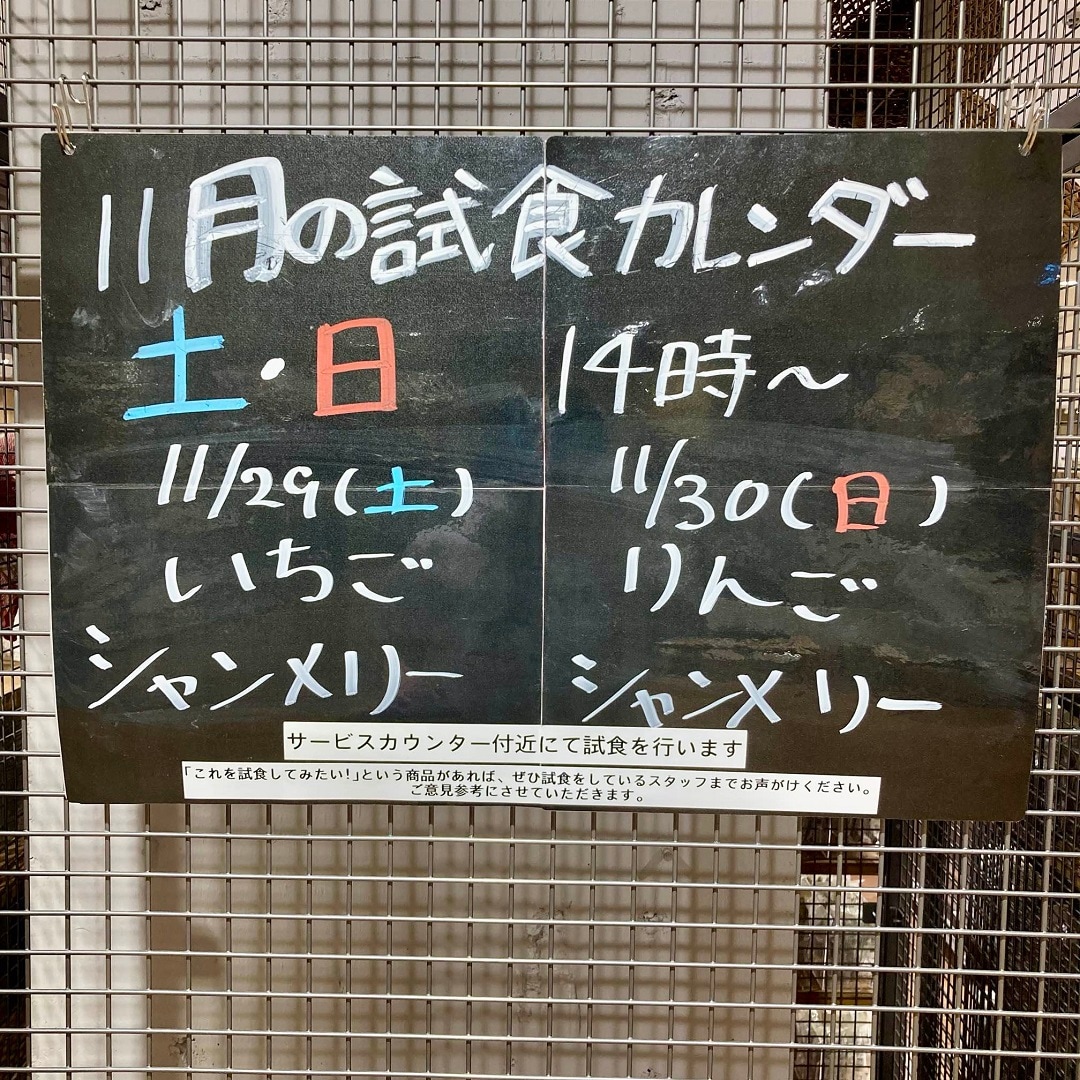 11月の試食カレンダー
土・日 14時～
11/29(土)
いちご
シャンメリー
11/30(日)
りんご
シャンメリー
サービスカウンター付近にて試食を行います
「これを試食してみたい！」という商品があれば、ぜひ試食をしているスタッフまでお声がけください。
ご意見参考にさせていただきます。